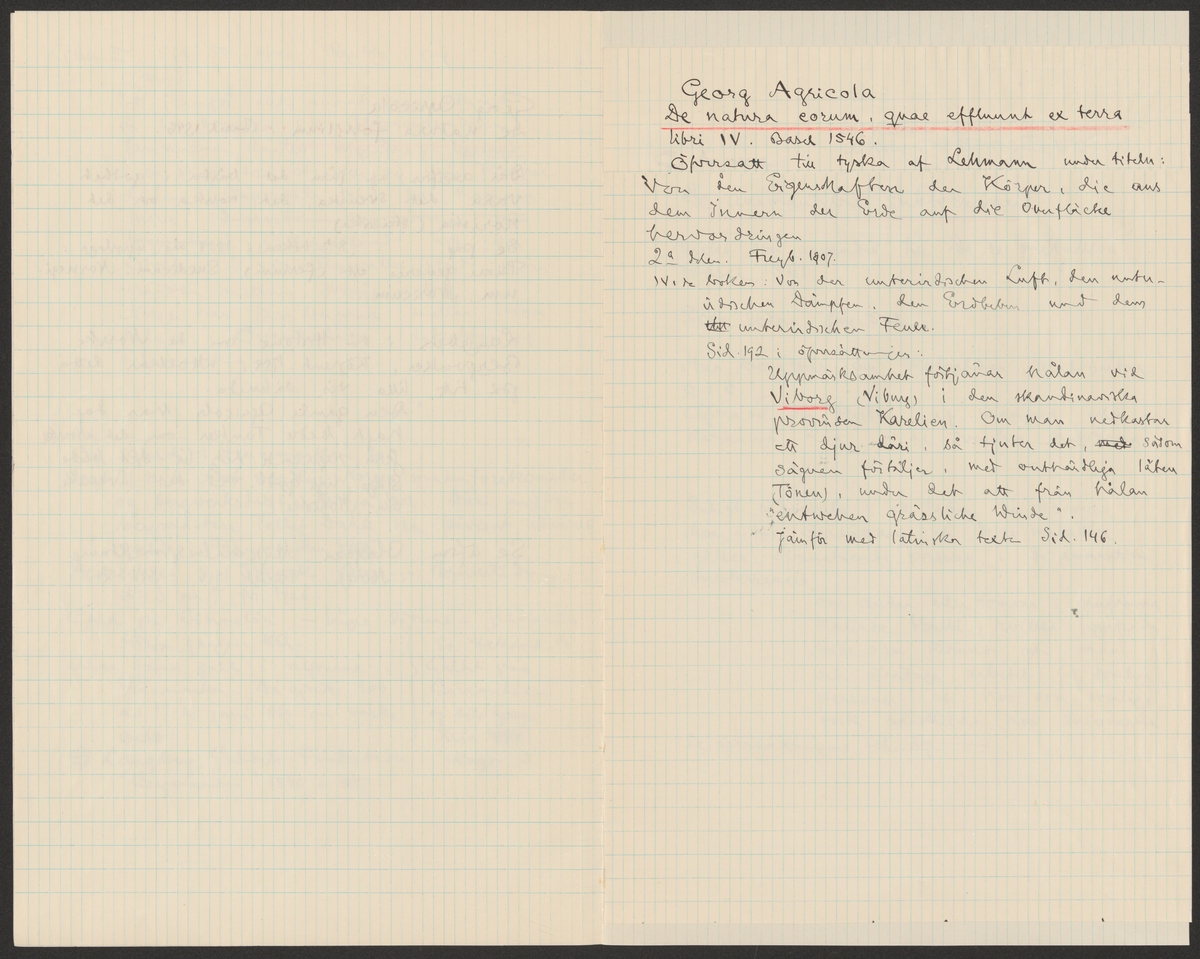 Georg Agricola
De natura eorum, quae effluunt ex terra
libri IV. Basel 1546.
Öfversatt till tyska af Lehmann under titeln:
Von den Eigenschaften der Körper, die aus
dem Innern der Erde auf die Oberfläche
hervordringen
2a delen. Freyb. 1807.
IV. de boken: Von der unterirdischen Luft, den unter-
irdischen Dämpfen, den Erdbeben und dem
unterirdischen Feuer.
Sid. 192 i öfversättningen:
Uppmärksamhet förtjänar hålan vid
Viborg (Viburg) i den skandinaviska
provinsen Karelien. Om man nedkastar
ett djur däri, så tjuter det, såsom
sägnen förtäljer, med outhärdliga läten
(Tönen), under det att från hålan
"entwehen grässliche Winde".
Jämför med latinska texten Sid. 146.